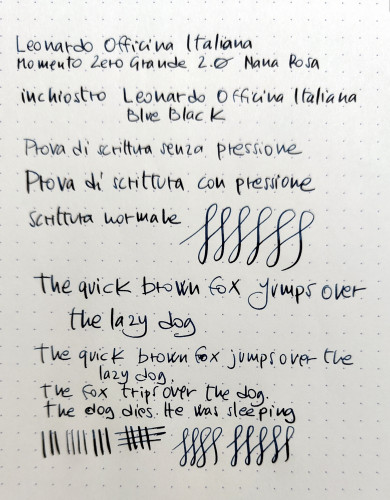 Leonardo Officina Italiana
Momento Zero Grande 2.0 Nana Rosa
inchiostro Leonardo Officina Italiana
Blue Black
Prova di scrittura senza pressione
Prova di scrittura con pressione
scrittura normale
The quick brown fox jumps over
the lazy dog
The quick brown fox jumps over the
lazy dog.
The fox trips over the dog.
The dog dies. He was sleeping